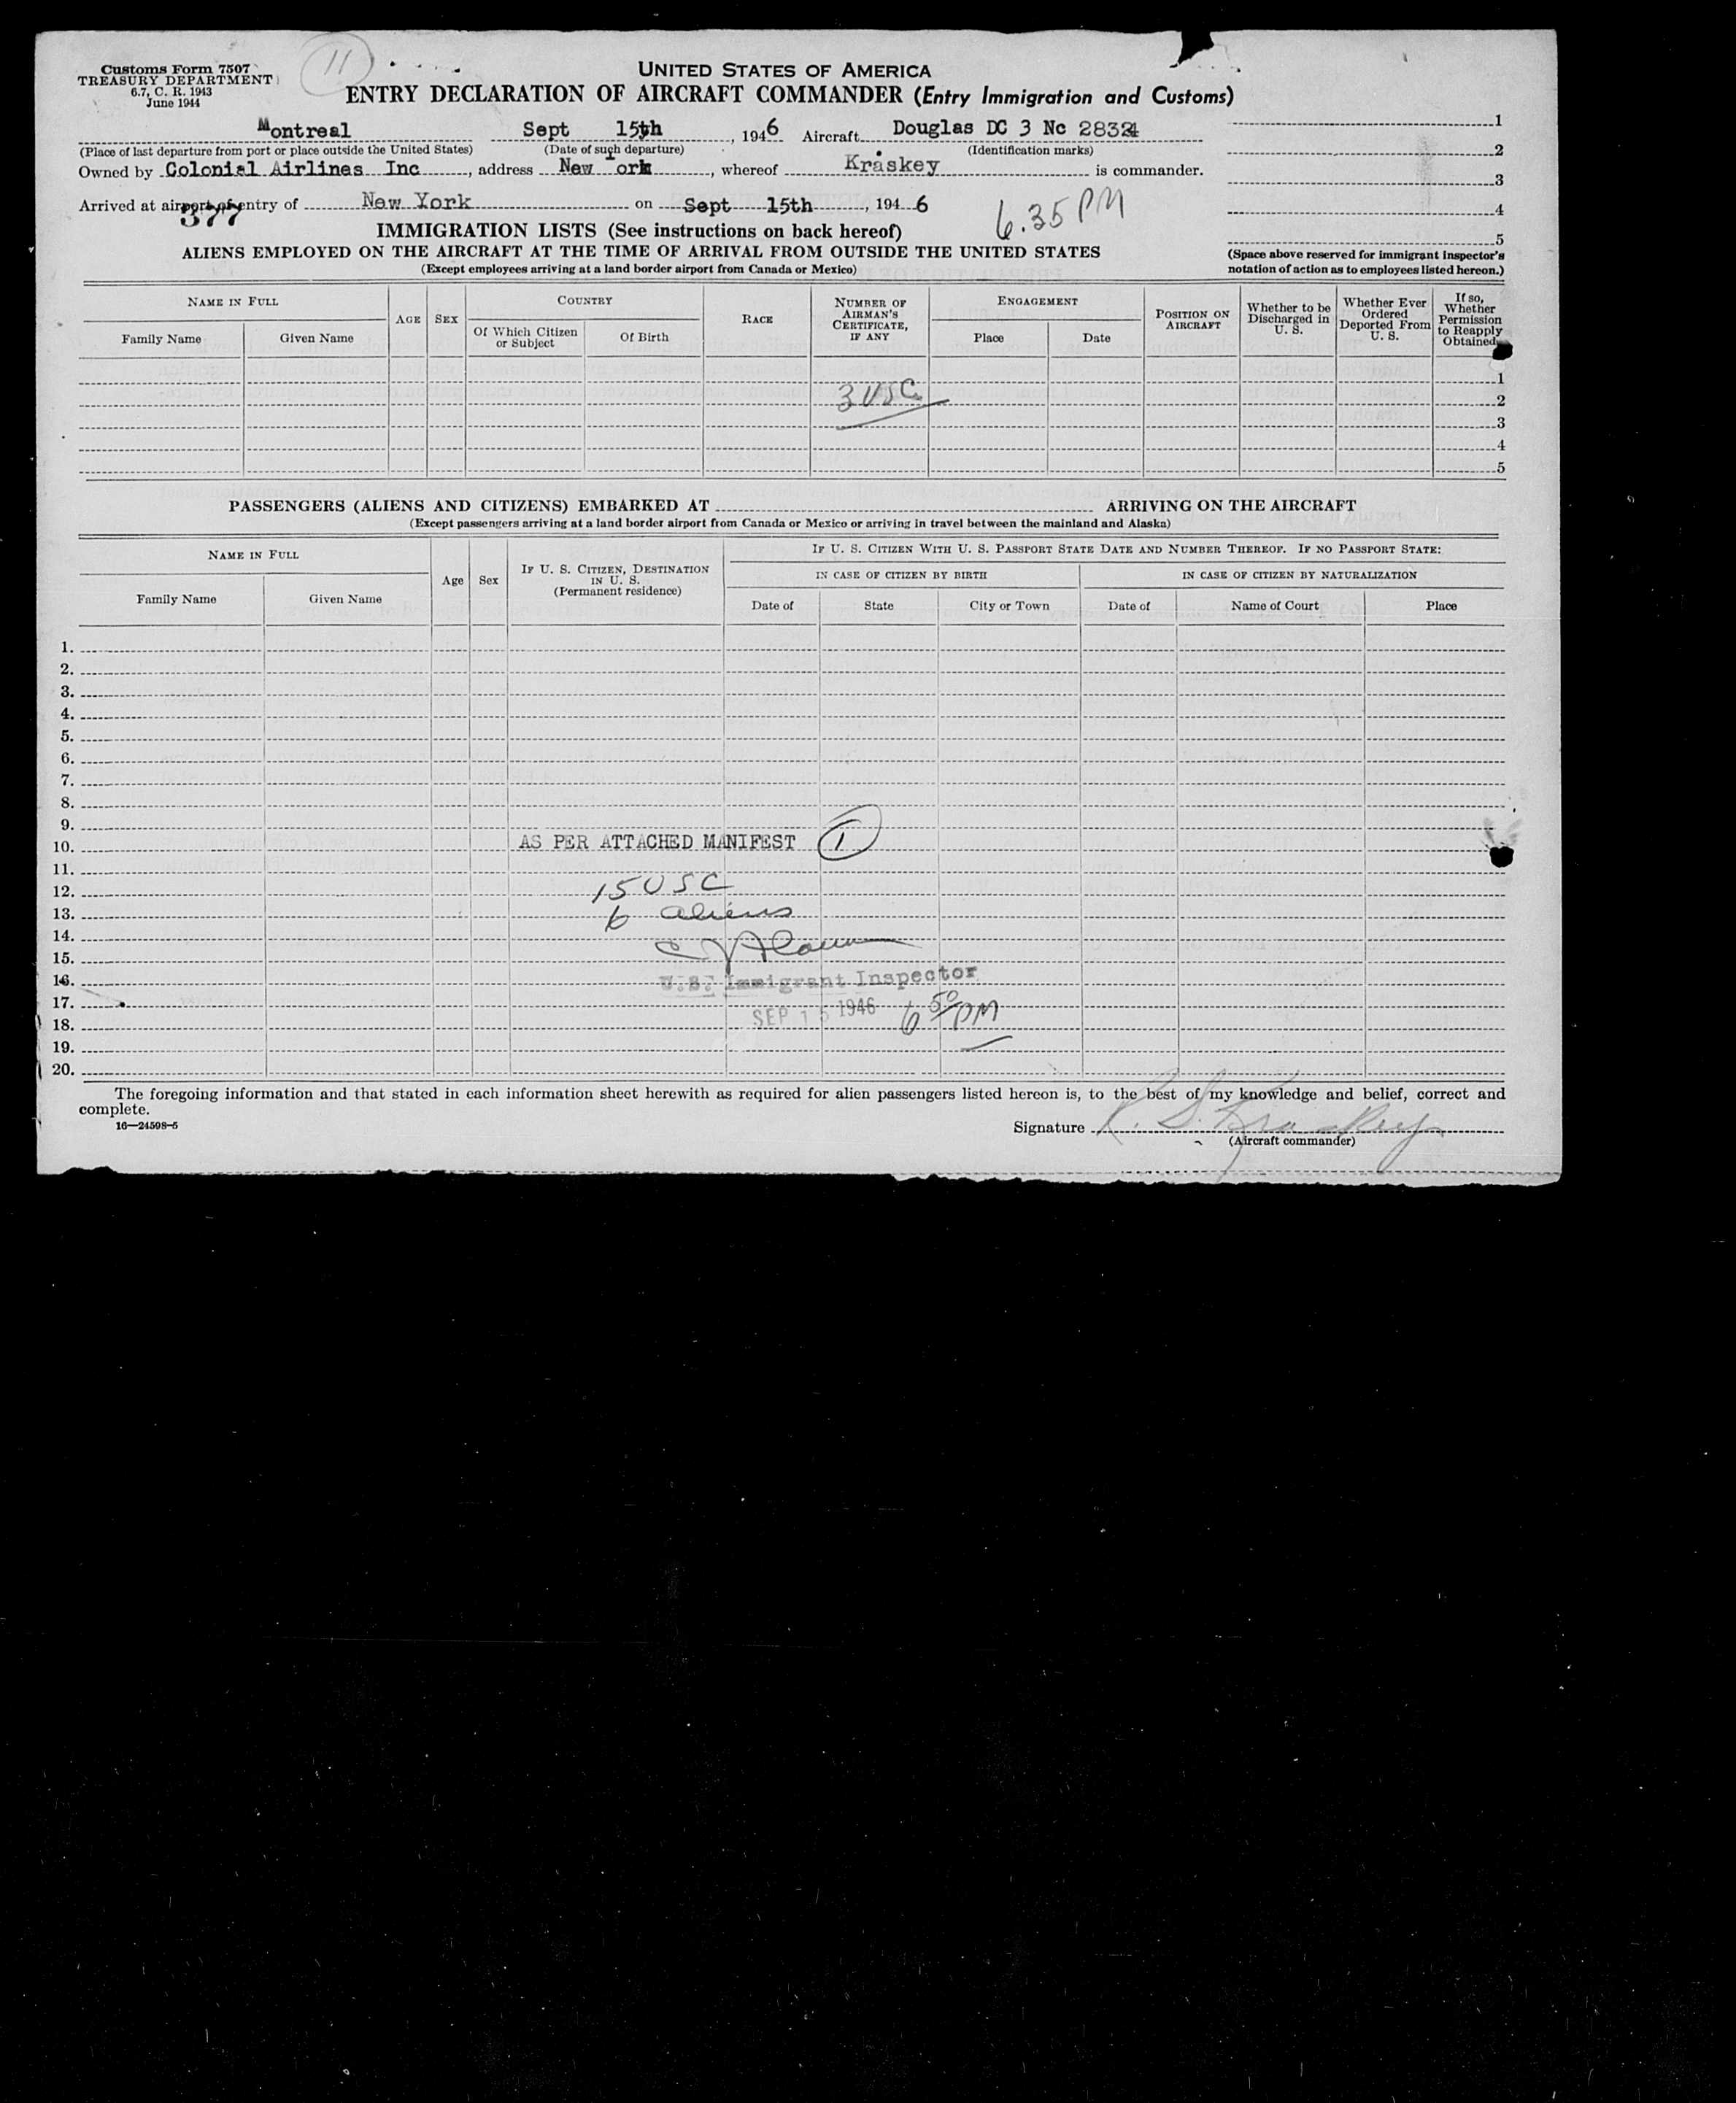 11
Customs Form 7507
TREASURY DEPARTMENT
6.7, C. R. 1943
June 1944
UNITED STATES OF AMERICA
ENTRY DECLARATION OF AIRCRAFT COMMANDER (Entry Immigration and Customs)
Montreal Sept 15th, 1946 Aircraft Douglas DC 3 Nc
(Place of last departure from port or place outside the United States) (Date of such departure) (Identification marks)
Owned by Colonial Airlines Inc, address New York, whereof Kraskey is commander.
Arrived at airport of entry of New York on Sept 15th, 1946 6.35 PM
377
1
2
3
4
5
IMMIGRATION LISTS (See instructions on back hereof)
ALIENS EMPLOYED ON THE AIRCRAFT AT THE TIME OF ARRIVAL FROM OUTSIDE THE UNITED STATES
(Except employees arriving at a land border airport from Canada or Mexico)
(Space above reserved for immigrant inspector's
notation of action as to employees listed hereon.)
NAME IN FULL
Family Name Given Name
AGE SEX
COUNTRY
Of Which Citizen or Subject
Of Birth
RACE
NUMBER OF AIRMAN'S CERTIFICATE, IF ANY
ENGAGEMENT
Place Date
POSITION ON AIRCRAFT
Whether to be Discharged in U. S.
Whether Ever Ordered Deported From U. S.
If so, Whether Permission to Reapply Obtained
1
3 USC 2
3
4
5
PASSENGERS (ALIENS AND CITIZENS) EMBARKED AT ARRIVING ON THE AIRCRAFT
(Except passengers arriving at a land border airport from Canada or Mexico or arriving in travel between the mainland and Alaska)
NAME IN FULL
Family Name Given Name
Age Sex
IF U. S. CITIZEN, DESTINATION IN U. S.
(Permanent residence)
IF U. S. CITIZEN WITH U. S. PASSPORT STATE DATE AND NUMBER THEREOF. IF NO PASSPORT STATE:
IN CASE OF CITIZEN BY BIRTH IN CASE OF CITIZEN BY NATURALIZATION
Date of State City or Town Date of Name of Court Place
1.
2.
3.
4.
5.
6.
7.
8.
9.
10. AS PER ATTACHED MANIFEST 1
11.
12. 15 USC
13. 6 aliens
14.
15.
16. U.S. Immigrant Inspector
17.
18. SEP 15 1946 6 50 PM
19.
20.
The foregoing information and that stated in each information sheet herewith as required for alien passengers listed hereon is, to the best of my knowledge and belief, correct and
complete.
16—24598-5
Signature R. S. Kraskey
(Aircraft commander)